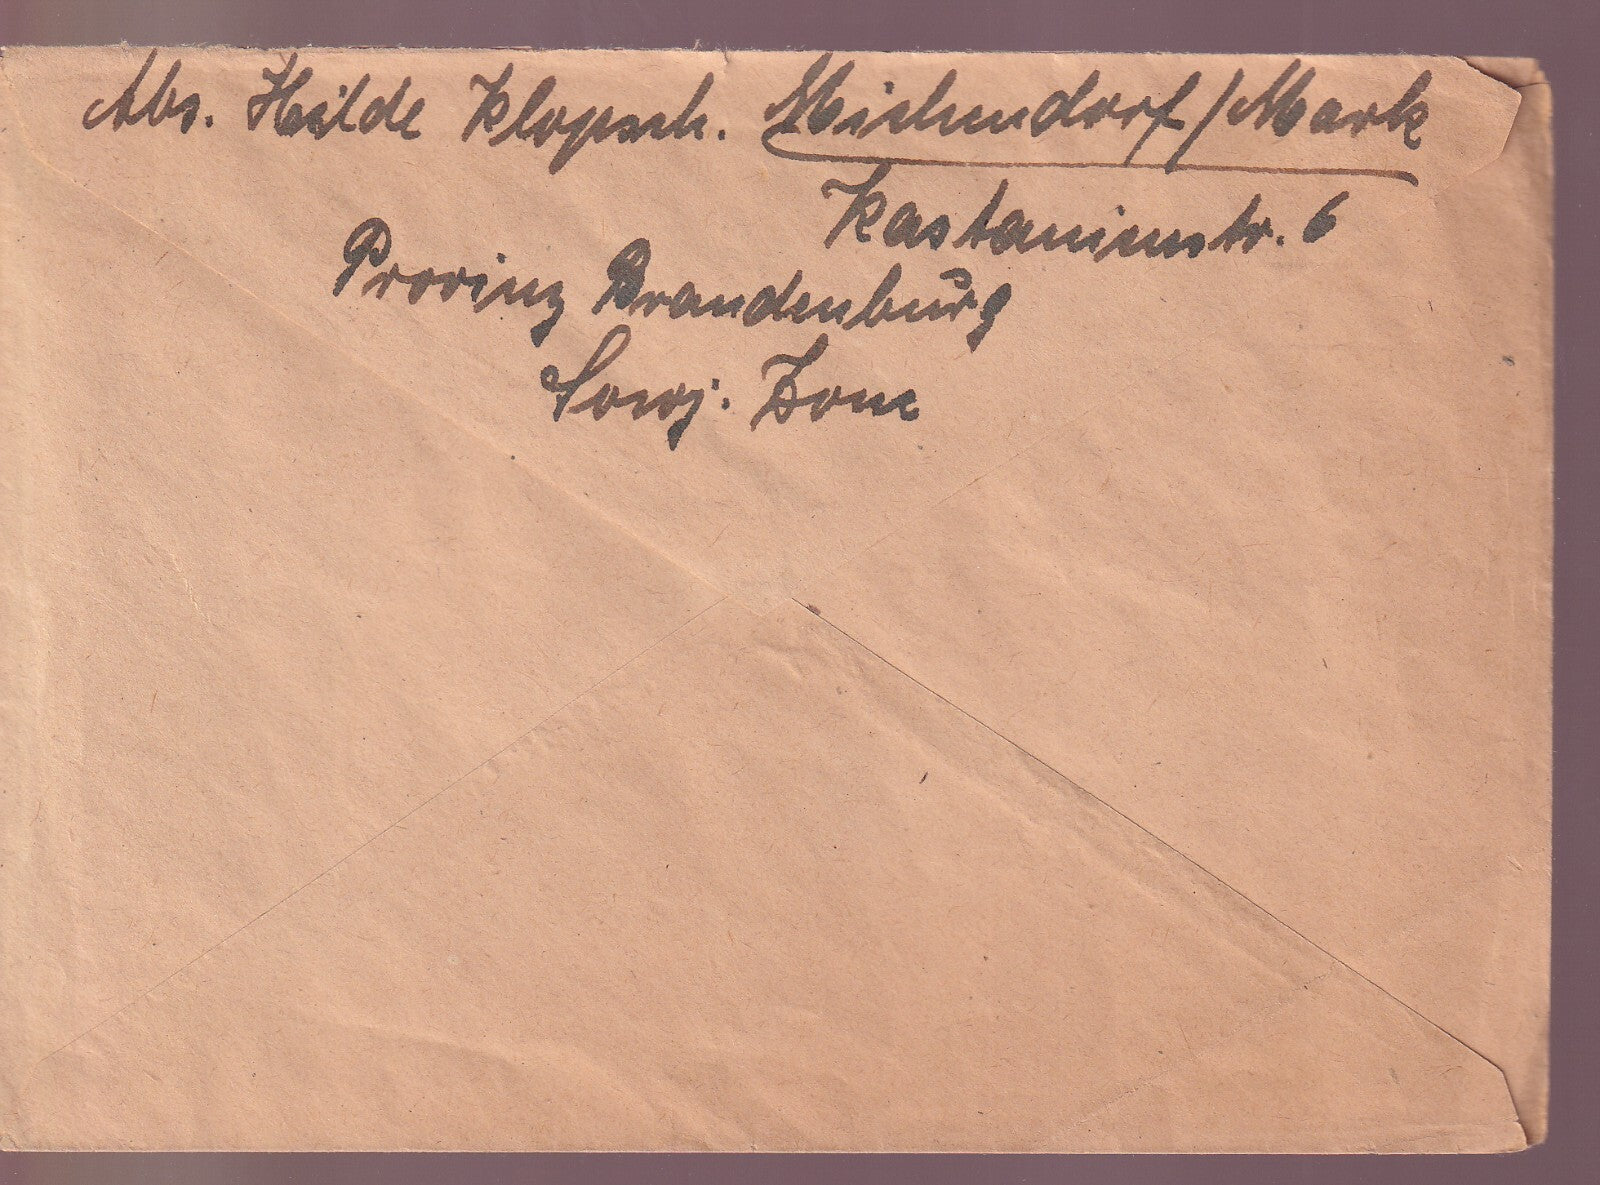 Abs. Hilde Klopsch. Michendorf/Mark
Kastanienstr. 6
Provinz Brandenburg
Sowj. Zone